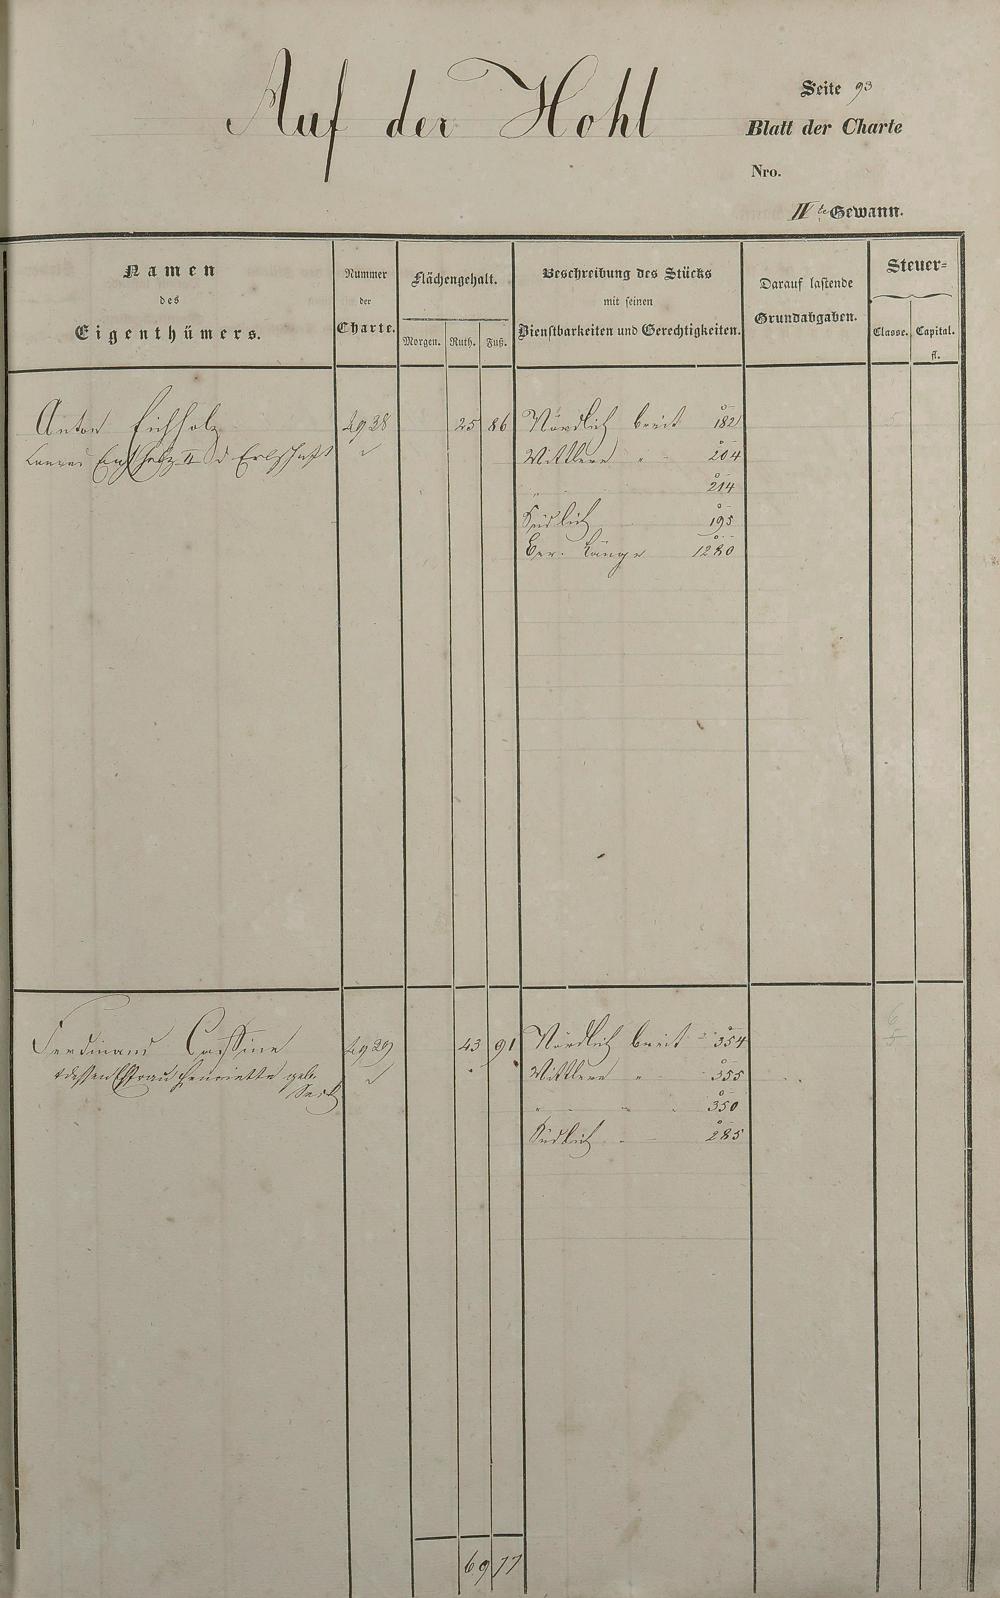 Auf der Hohl
Seite 93
Blatt der Charte
Nro.
IV te Gewann.
Namen
des
Eigenthümers.
Nummer
der
Charte.
Flächengehalt.
Morgen. Ruth. Fuß.
Beschreibung des Stücks
mit seinen
Dienstbarkeiten und Gerechtigkeiten.
Darauf lastende
Grundabgaben.
Steuer-
Classe. Capital.
fl.
Anton Eichholz 4928 25 86 Nördlich breit 182
Eichholz II d Erbschaft Mittlere " 204
" 214
Südlich 195
Ber. Länge 1280
Ferdinand Cassine 4929 43 91 Nördlich breit 354
+ dessen Ehfrau Henriette geb. Mittlere " 355
" " 350
Südlich 285
69 77